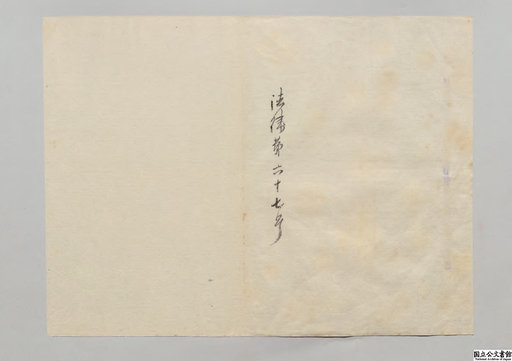 法律第六十七号
国立公文書館
National Archives of Japan